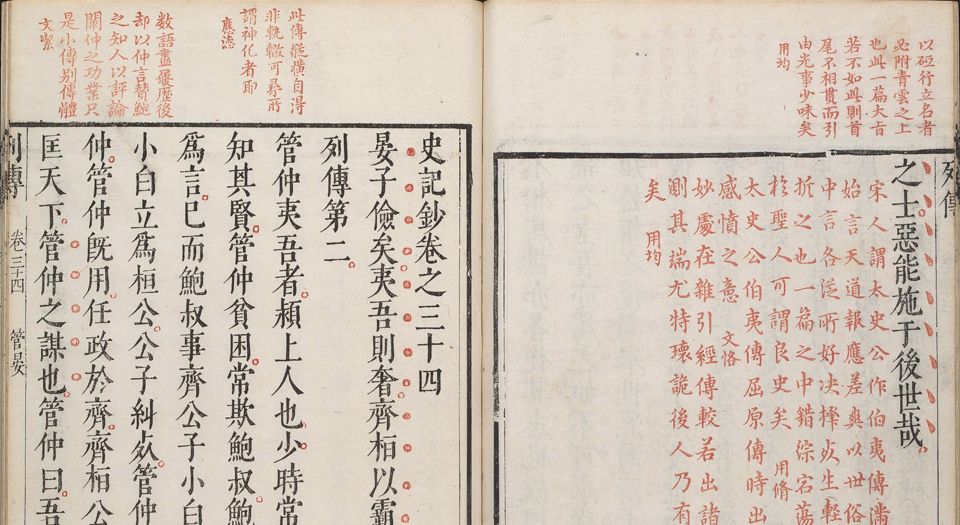 以砥行立名者
必附青雲之上
也此一篇大旨
若不如此則首
尾不相貫而引
由光事少味矣
用均
列傳
之士惡能施于後世哉
宋人謂太史公作伯夷傳滿
始言天道報應差爽以世俗
中言各從所好決擇死生輕
折之也一篇之中錯綜宕蕩
於聖人可謂良史矣 用脩
太史公伯夷傳屈原傳時出
感憤之意 文恪
妙處在雜引經傳較若出諸
測其端尤特瓌詭後人乃有
矣 用均
此傳縱橫自得
非軌轍可尋所
謂神化者耶
應德
數語盡屢歷後
却以仲言替鮑
之知人以評論
關仲之功業只
是小傳別傳體
文絜
史記鈔卷之三十四
晏子儉矣夷吾則奢齊桓以霸
列傳第二
管仲夷吾者潁上人也少時常
知其賢管仲貧困常欺鮑叔鮑
爲言已而鮑叔事齊公子小白
小白立爲桓公公子糾死管仲
仲管仲旣用任政於齊齊桓公
匡天下管仲之謀也管仲曰吾
列傳 卷三十四 管晏